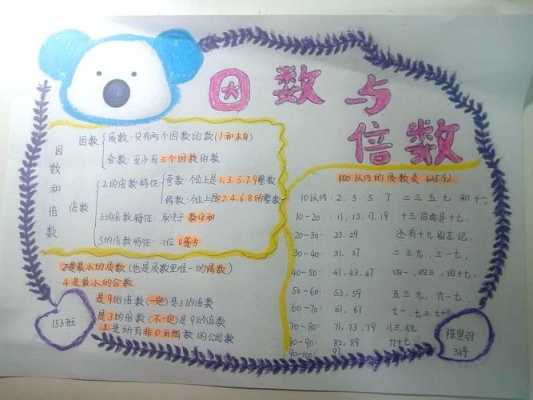 因数与
倍数
因数和倍数
因数
质数：只有两个因数的数(1和本身)
合数：至少有三个因数的数
倍数
2的倍数特征
奇数：个位上是1.3.5.7.9的整数
偶数：个位上是2.4.6.8的整数
3的倍数特征
5的倍数特征
2是最小的质数(也是质数里唯一的偶数)
4是最小的合数
是9的倍数(一定)是3的倍数
是3的倍数(不一定)是9的倍数
1是所有非0自然数的公因数
153班
100以内的质数表
10以内 2 3 5 7 二三五七和十一
10-20 11, 13, 17, 19 十三后面是十七
20-30 23 29 还有十九别忘记
30-40 31 37 二三九，三一七
40-50 41, 43, 47 四一，四三，四十七
50-60 53, 59 五三九，六一七
60-70 61, 67
70-80 71, 73, 79
80-90 83, 89
90-100 97